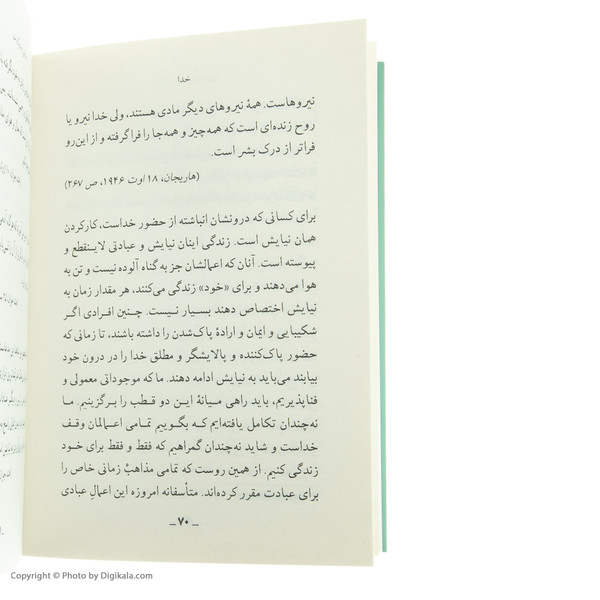 خدا
نیروهاست. همهٔ نیروهای دیگر مادی هستند، ولی خدا نیرو یا
روح زنده‌ای است که همه‌چیز و همه‌جا را فرا گرفته و از این‌رو
فراتر از درک بشر است.
(هاریجان، ۱۸ اوت ۱۹۴۶، ص ۲۶۷)
برای کسانی که درونشان انباشته از حضور خداست، کارکردن
همان نیایش است. زندگی اینان نیایش و عبادتی لاینقطع و
پیوسته است. آنان که اعمالشان جز به گناه آلوده نیست و تن به
هوا می‌دهند و برای «خود» زندگی می‌کنند، هر مقدار زمان به
نیایش اختصاص دهند بسیار نیست. چنین افرادی اگر
شکیبایی و ایمان و ارادهٔ پاک‌شدن را داشته باشند، تا زمانی که
حضور پاک‌کننده و پالایشگر و مطلق خدا را در درون خود
بیابند می‌باید به نیایش ادامه دهند. ما که موجوداتی معمولی و
فناپذیریم، باید راهی میانهٔ این دو قطب را برگزینیم. ما
نه‌چندان تکامل یافته‌ایم که بگوییم تمامی اعمالمان وقف
خداست و شاید نه‌چندان گمراهیم که فقط و فقط برای خود
زندگی کنیم. از همین روست که تمامی مذاهب زمانی خاص را
برای عبادت مقرر کرده‌اند. متأسفانه امروزه این اعمالِ عبادی
ـ ۷۰ ـ
Copyright © Photo by Digikala.com